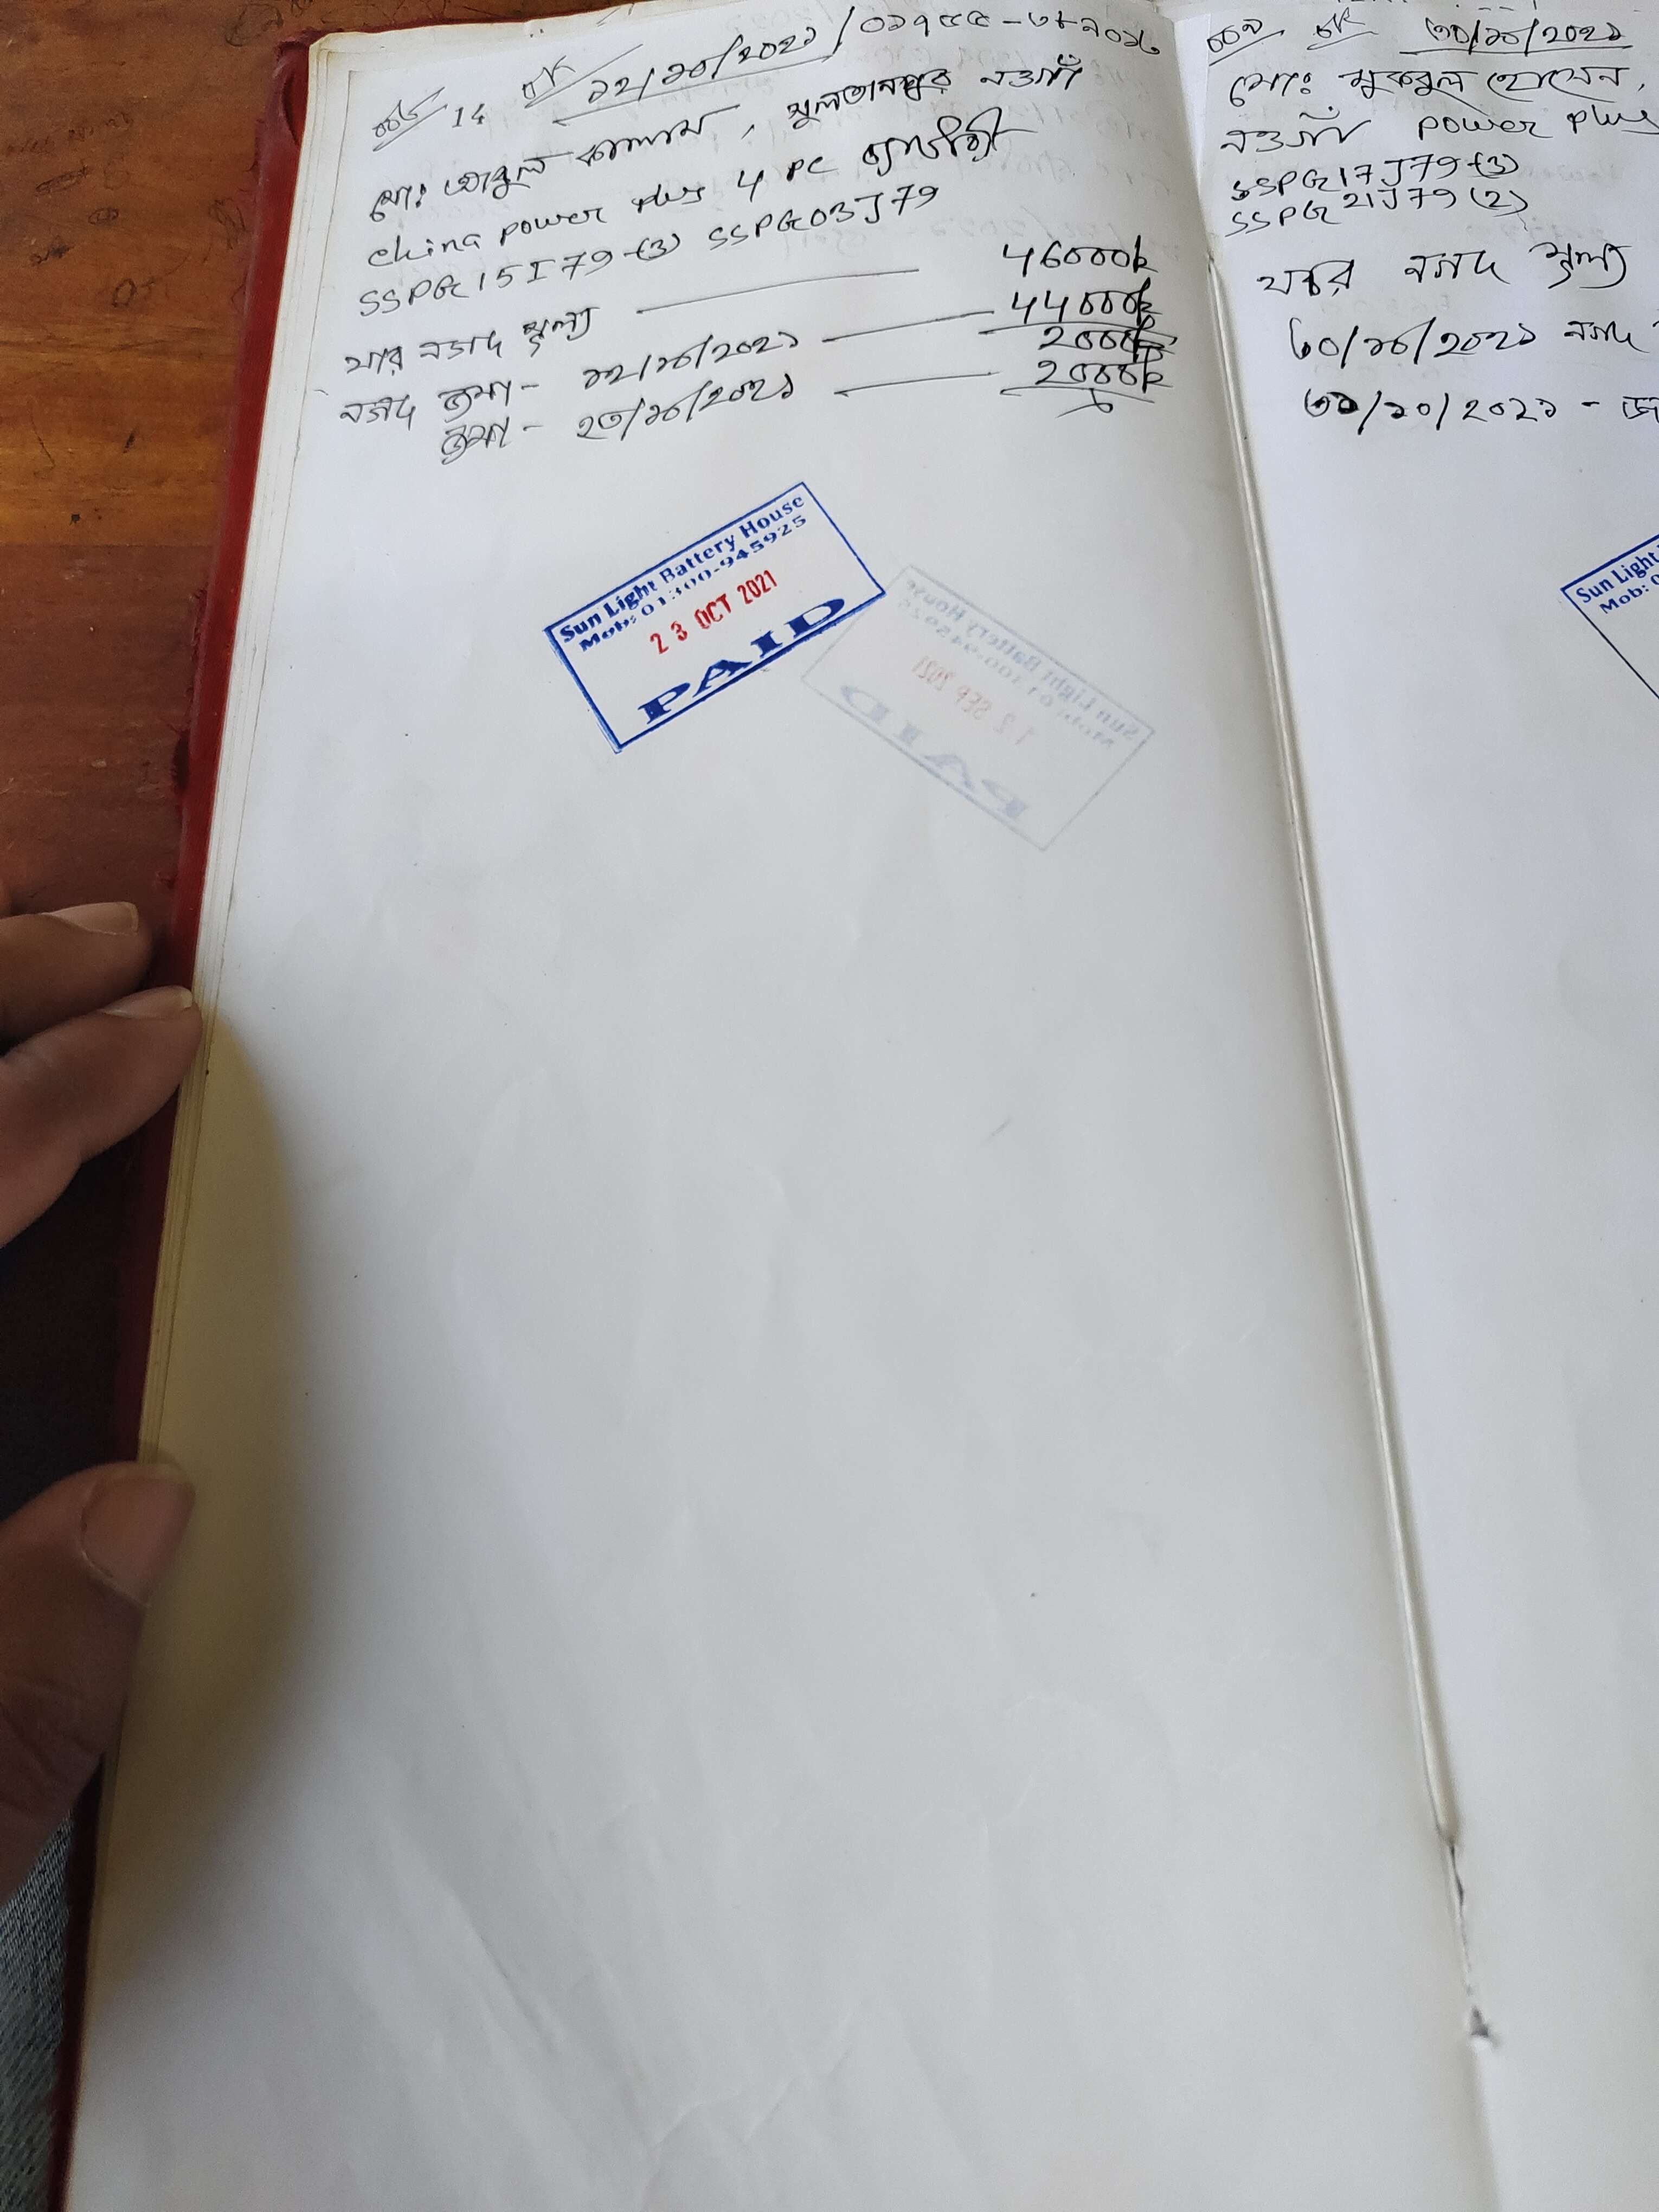 ০০৬ 14 OK ১২/১০/২০২১ / ০১৭
মোঃ আবুল কালাম, সুলতানপুর নওগাঁ
china power plus 4 pc ব্যাটারী
SSPG15I79-(3) SSPG03J79
যার নগদ মূল্য 46000
নগদ জমা - ১২/১০/২০২১ 44000
2000
জমা - ২৩/১০/২০২১ 2000
Sun Light Battery House
Mob: 01300-945925
23 OCT 2021
PAID
Sun Light Battery House
12 SEP 2021
PAID
OK ৩০/১০/২০২১
মোঃ মুকবুল হোসেন,
নওগাঁ power plus
SSPG17J79-(3)
SSPG21J79(2)
যার নগদ মূল্য
৩০/১০/২০২১ নগদ
৩১/১০/২০২১ -
Sun Light
Mob: 0